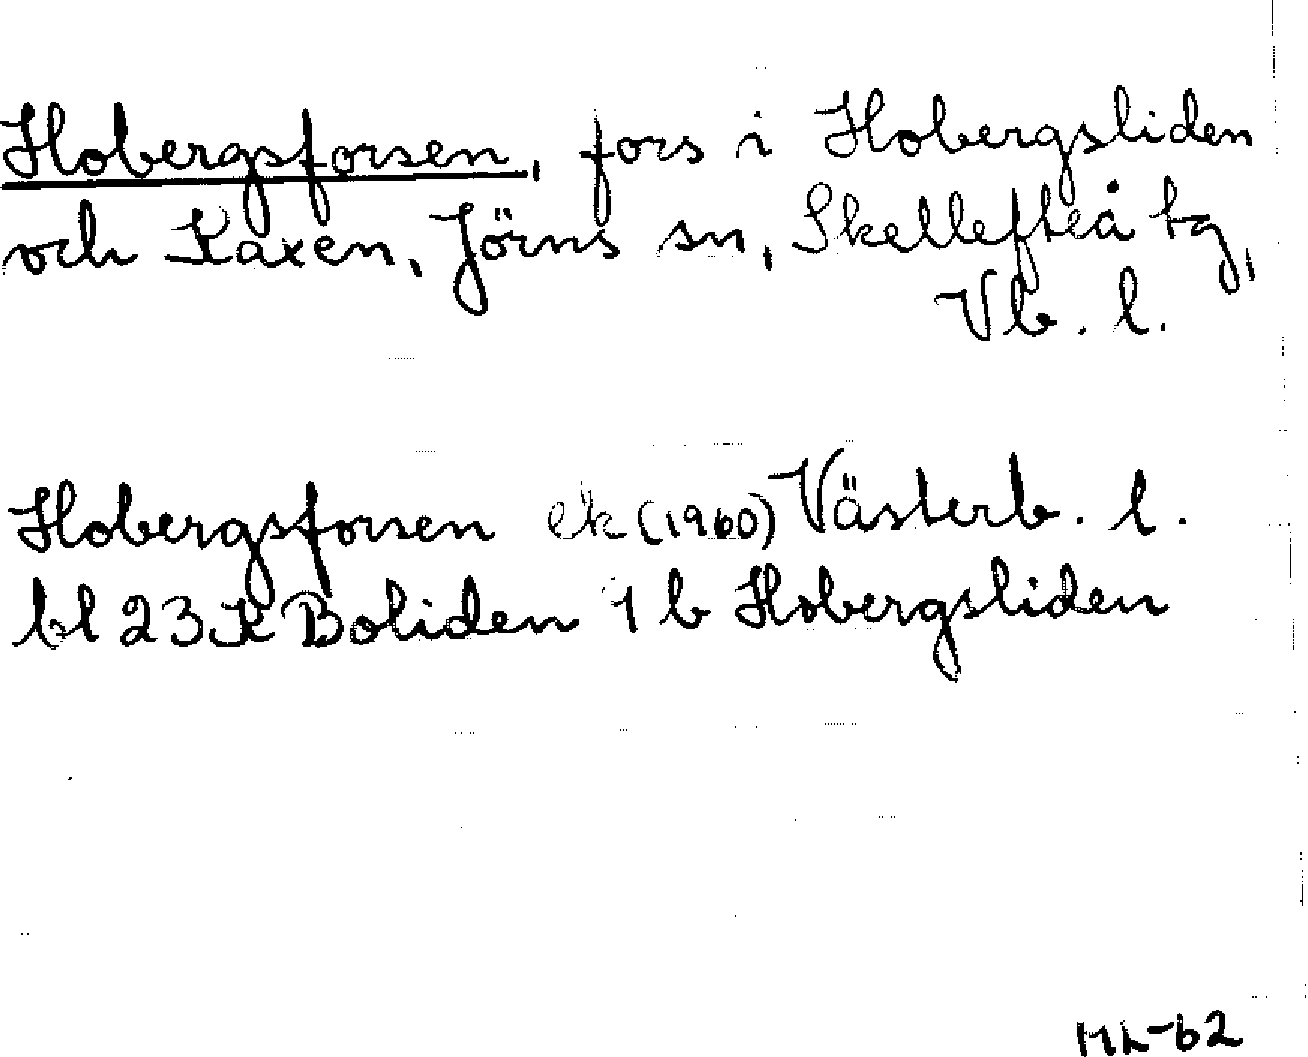 Hobergsforsen, fors i Hobergsliden
och Kaxen, Jörns sn, Skellefteå tg,
Vb. l.
Hobergsforsen ek (1960) Västerb. l.
bl 23 K Boliden 1 b Hobergsliden
ML-62